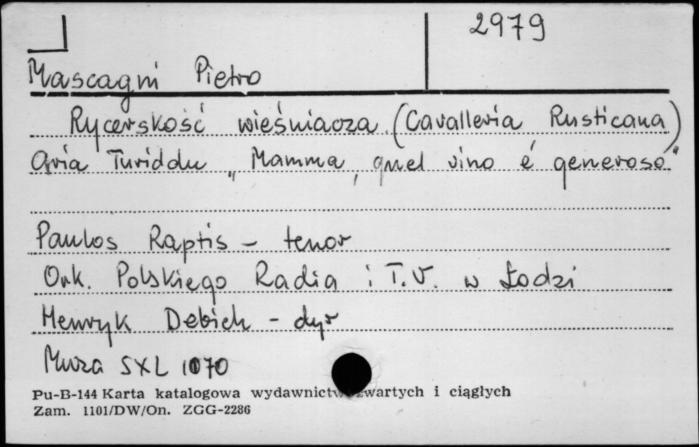 2979
Mascagni Pietro
Rycerskość wieśniacza. (Cavalleria Rusticana)
Aria Turiddu „Mamma, quel vino é generoso"
Paulos Raptis - tenor
Ork. Polskiego Radia i T.V. w Łodzi
Henryk Debich - dyr
Muza SXL 1070
Pu-B-144 Karta katalogowa wydawnictw zwartych i ciągłych
Zam. 1101/DW/On. ZGG-2286